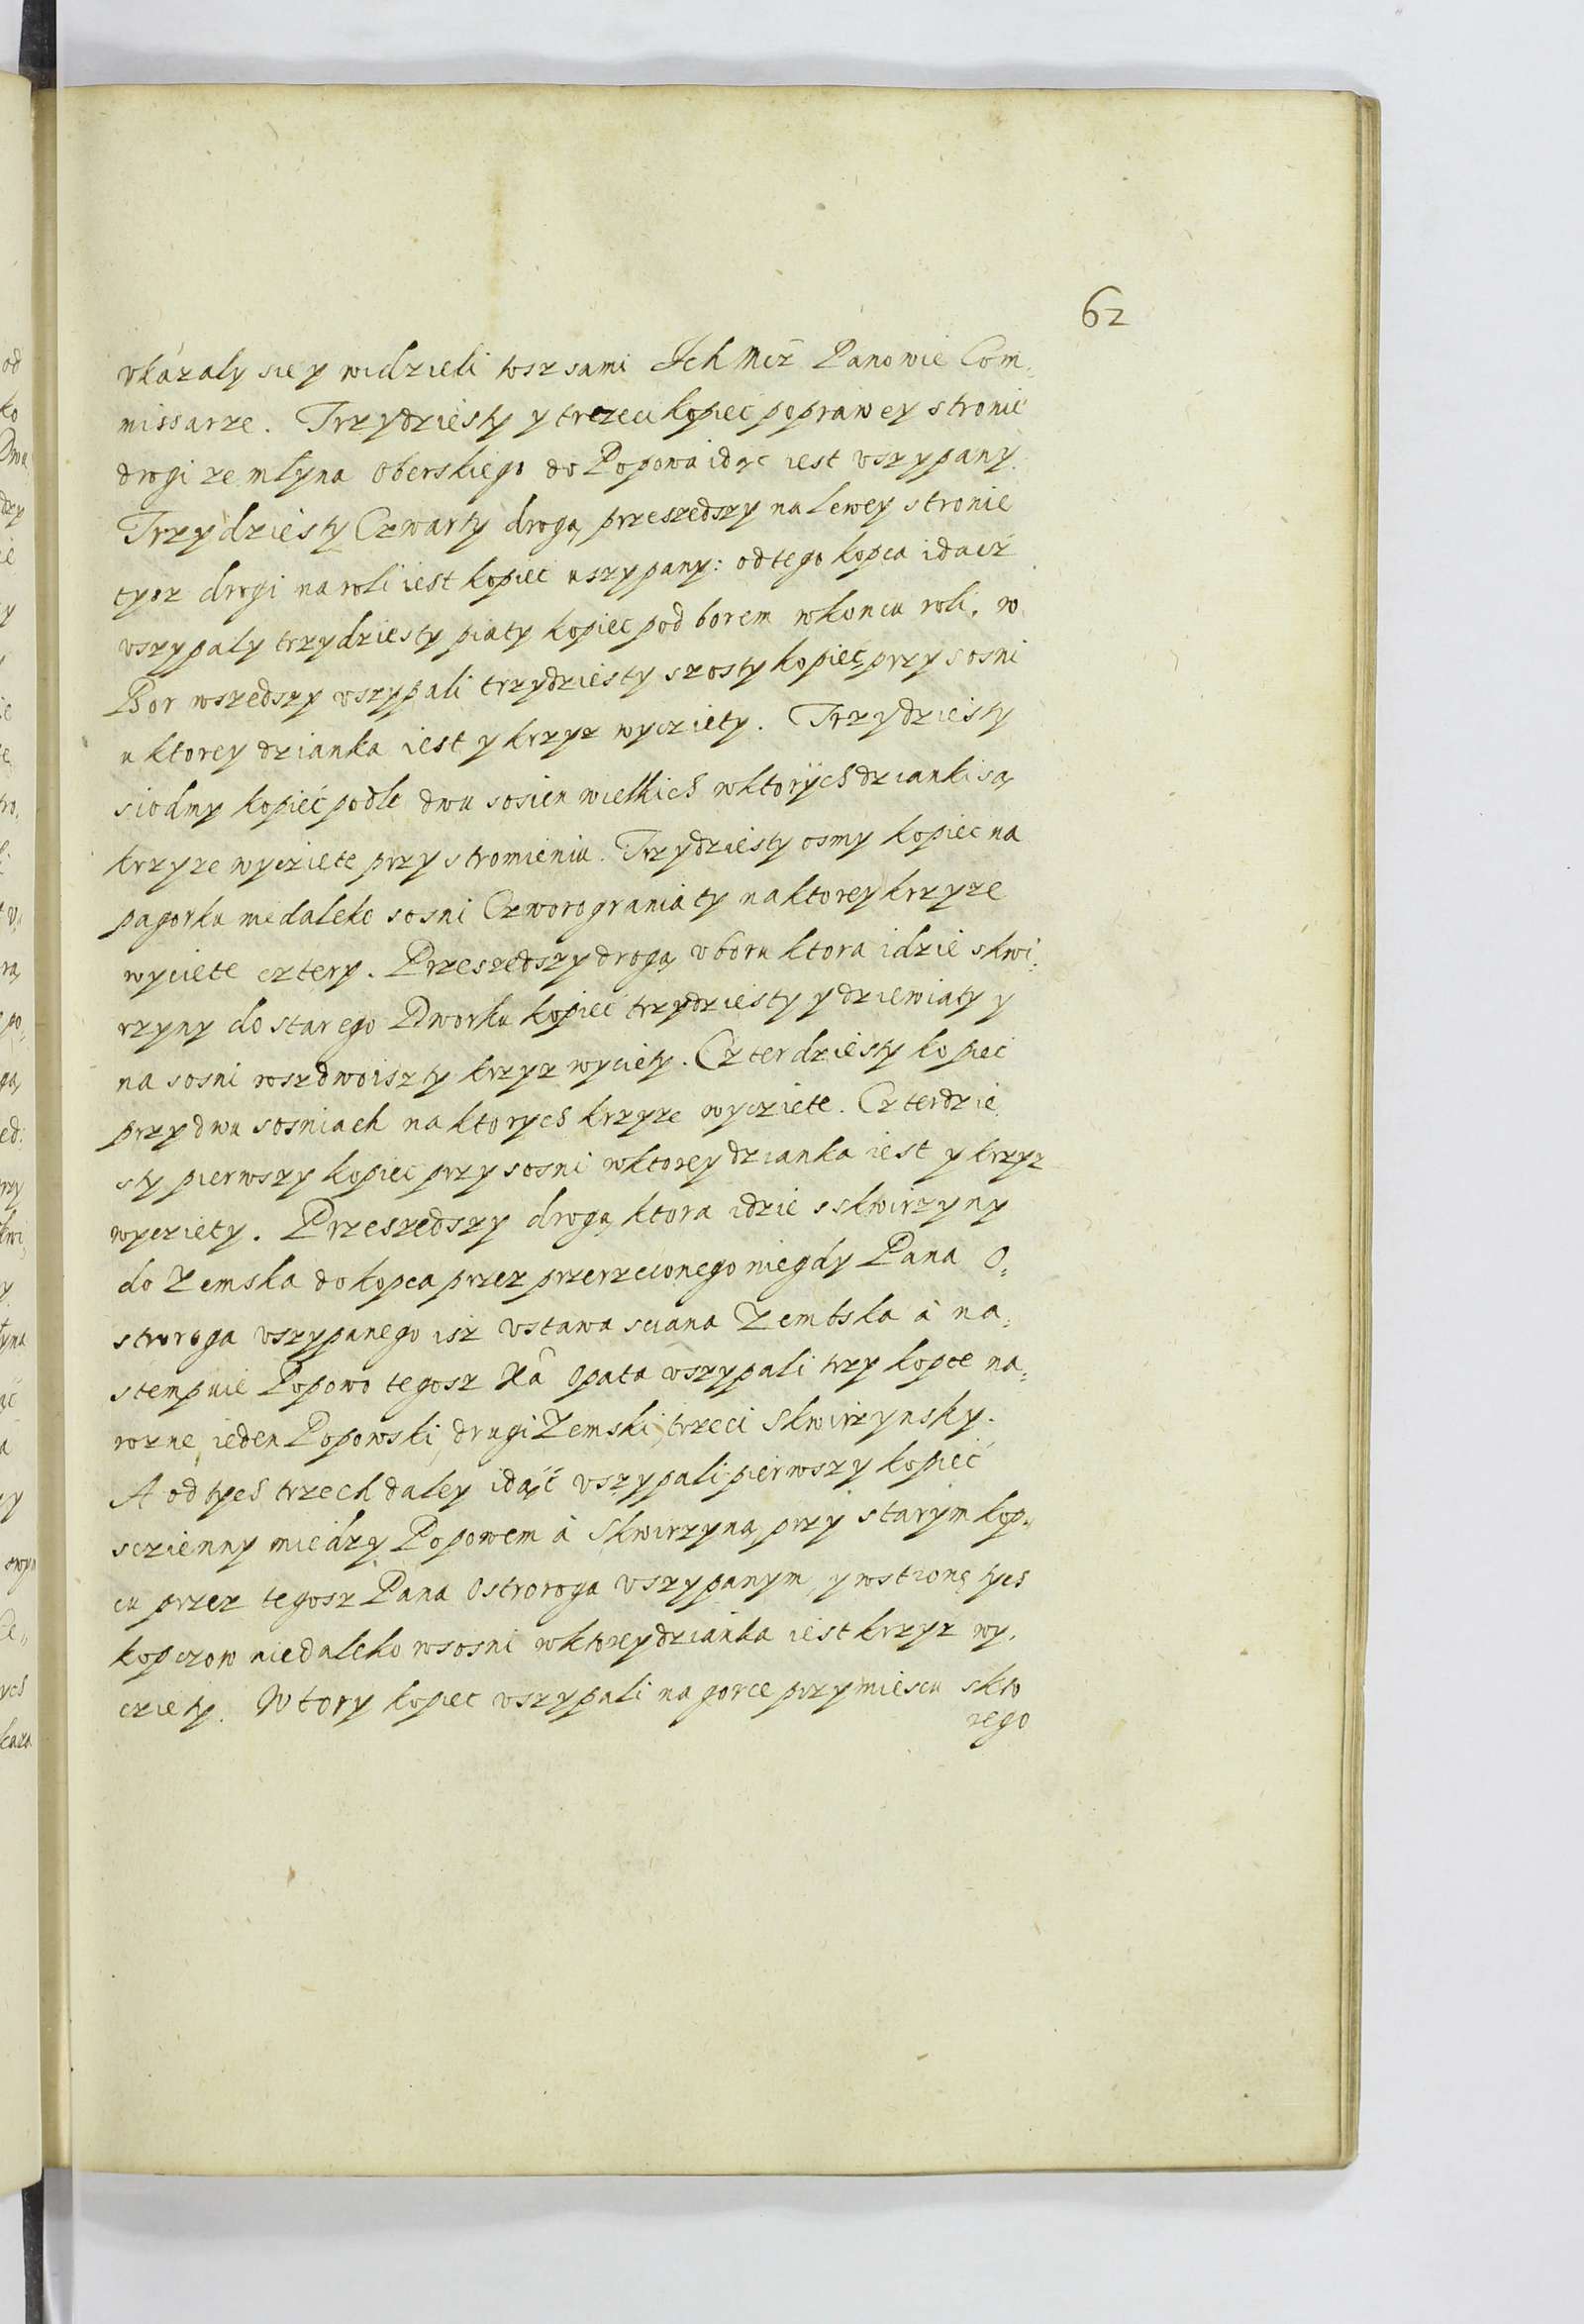 62
vkázaly sie y widzieli tosz sami Ich Mcz Panowie Com„
missarze. Trzydziesty y trzeci kopiec po prawey stronie
drogi ze młyna Oberskiego do Popowa idąc iest vszypany.
Trzydziesty Czwarty drogą przeszedszy na lewey stronie
tysz drogi na roli iest kopiec uszypany: od tego kopca idacz
vszypaly trzydziesty piąty kopiec pod borem w koncu roli. w
Bor wszedszy vszypali trzydziesty szosty kopiec przy sosni
u ktorey dzianka iest y krzyz wycziety. Trzydziesty
siodmy kopieć podle dwu sosien wielkich w ktorych dzianki są
krzyze wycziete przy stromieniu. Trzydziesty osmy kopiec na
pagorku niedaleko sosni Czworograniaty na ktorey krzyze
wyciete cztery. Przeszedszy drogą v boru ktora idzie skwi„
rzyny do starego Dworku kopieć trzydziesty y dziewiąty y
na sosni roszdwoiszty krzyz wyciety. Czterdziesty kopiec
przy dwu sosniach na ktorych krzyze wycziete. Czterdzie
sty pierwszy kopiec przy sosni w ktorey dzianka iest y krzyz
wycziety. Przeszedszy drogą ktora idzie s skwirzyny
do Zemska do kopca przez przerzeconego niegdy Pana O„
stroroga vszypanego isz vstawa sciana Zembska à na„
stempuie Popowo tegosz Xa Opata vszypali trzy kopce na„
rozne, ieden Popowski, drugi Zemski, trzeci Skwirzynsky.
A od tych trzech daley idąć vszypali pierwszy kopieć
sczienny miedzy Popowem à Skwirzyną przy starym kop„
cu przez tegosz Pana Ostroroga vszypanym, y w stronę tych
kopczow niedaleko w sosni w ktorey dzianka iest krzyz wy„
cziety. Wtory kopiec vszypali na gorce przy miescu skto
rego